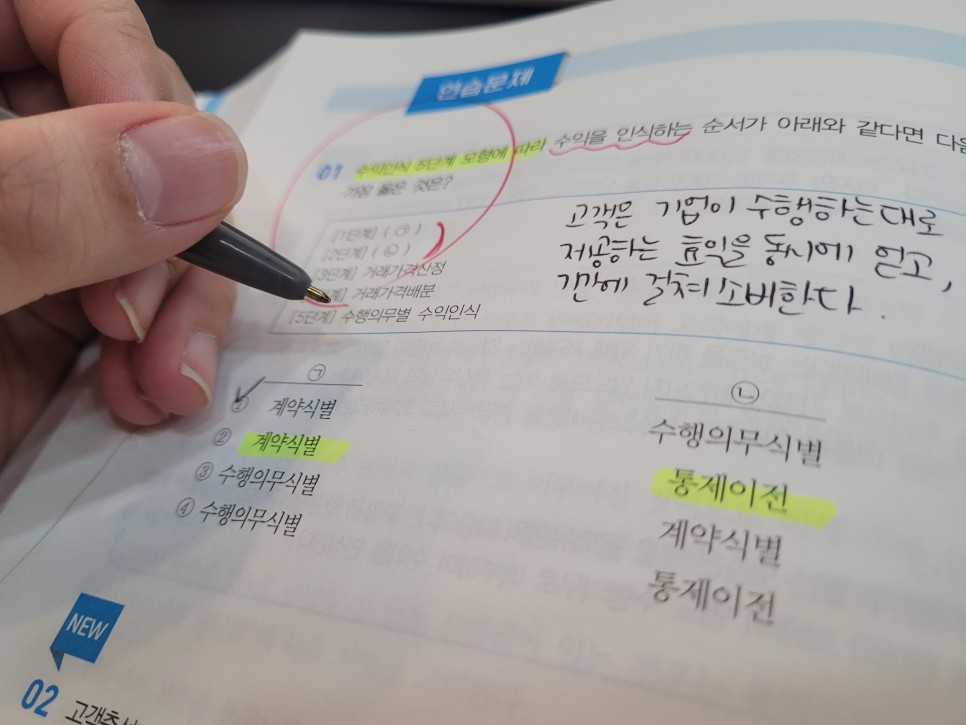 연습문제
01 수익인식 5단계 모형에 따라 수익을 인식하는 순서가 아래와 같다면 다음
가장 옳은 것은?
[1단계] ( ㉠ )
[2단계] ( ㉡ )
[3단계] 거래가격산정
거래가격배분
[5단계] 수행의무별 수익인식
고객은 기업이 수행하는대로
제공하는 효익을 동시에 얻고,
기간에 걸쳐 소비한다.
㉠ ㉡
① 계약식별 수행의무식별
② 계약식별 통제이전
③ 수행의무식별 계약식별
④ 수행의무식별 통제이전
NEW
02